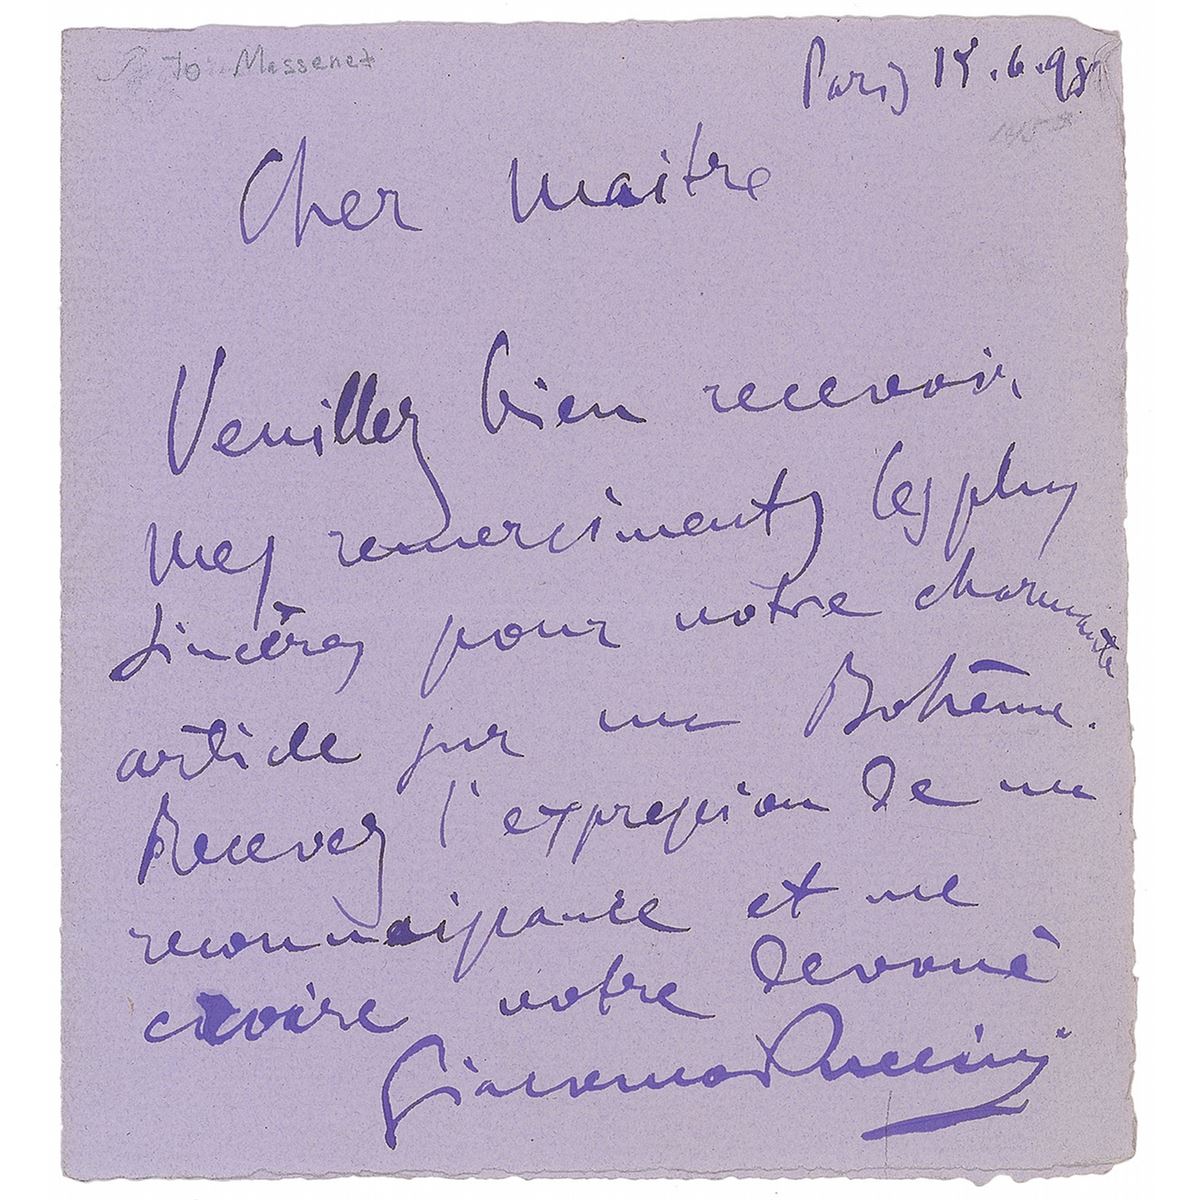 To Massenet
Paris 15.6.98
Cher maitre
Veuillez bien recevoir
mes remerciments les plus
sincéres pour votre charmante
article sur ma Bohême.
Recevez l'expression de ma
reconnaissance et me
croire votre devoué
Giacomo Puccini